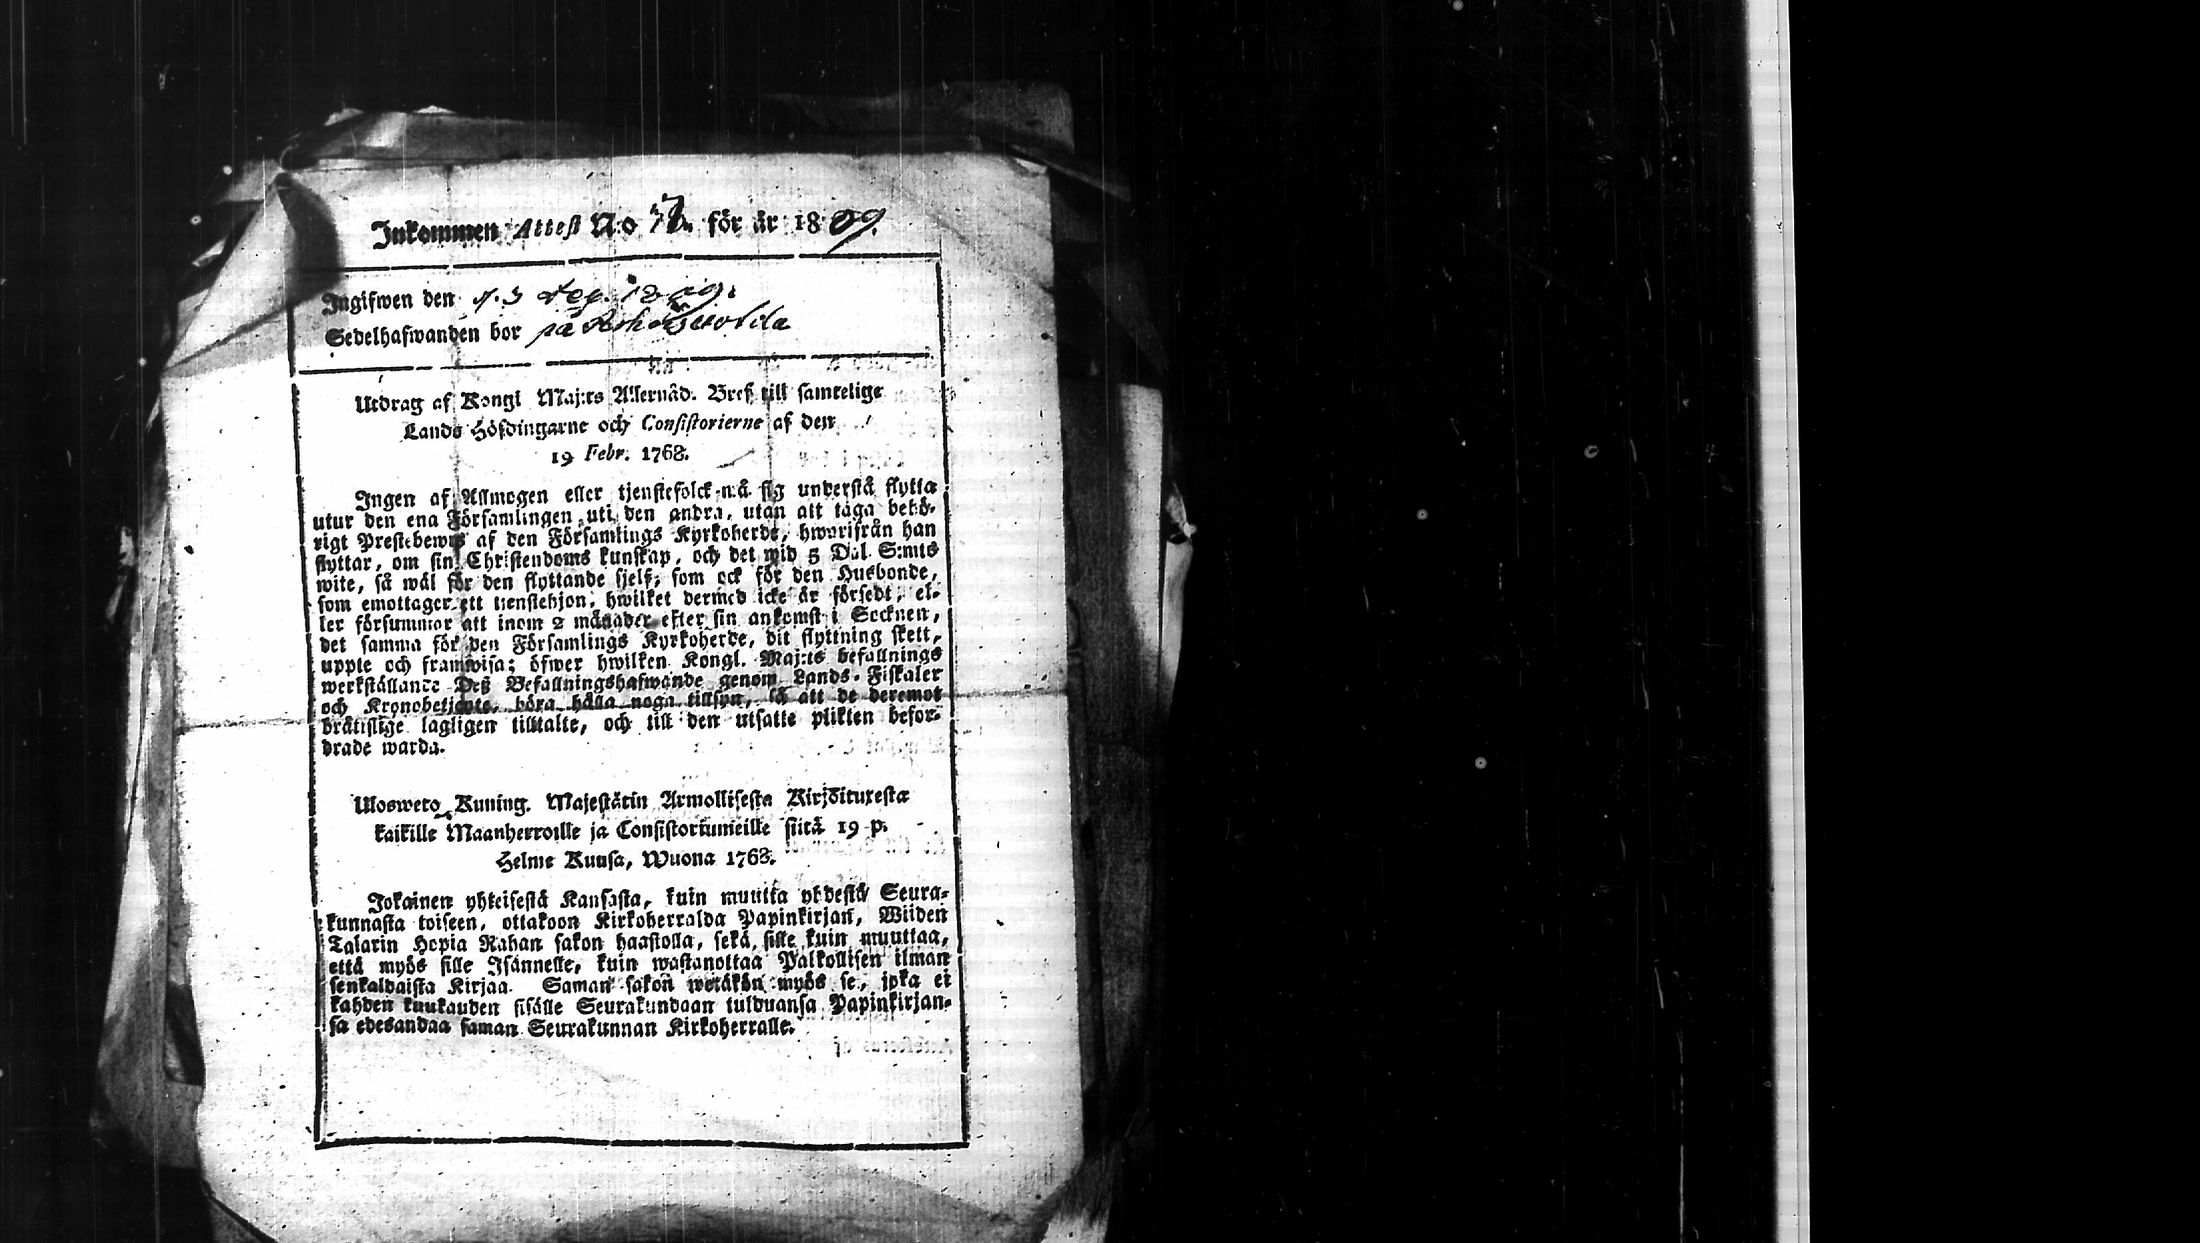 Inkommen Attest N:o för år 1809.
Ingifwen den 1809.
Sedelhafwanden bor på
Utdrag af Kongl Maj:ts Allernåd. Bref till samtelige
Lands Höfdingarne och Consistorierne af den
19 Febr. 1768.
Ingen af Allmogen eller tjenstefolck må sig understå flytta
utur den ena Församlingen uti den andra, utan att taga behö-
rigt Prestebewis af den Församlings Kyrkoherde, hwarifrån han
flyttar, om sin Christendoms kunskap, och det wid 5 Dal. S:mts
wite, så wäl för den flyttande sjelf, som ock för den Husbonde,
som emottager ett tienstehjon, hwilket dermed icke är försedt, el-
ler försummar att inom 2 månader efter sin ankomst i Socknen,
det samma för den Församlings Kyrkoherde, dit flyttning skett,
uppte och framwisa; öfwer hwilken Kongl. Maj:ts befallnings
werkställande Deß Befallningshafwande genom Lands-Fiskaler
och Kronobetjente, böra hålla noga tillsyn, så att de deremot
bråtislige lagligen tilltalte, och till den utsatte plikten befor-
drade warda.
Ulosweto Kuning. Majestätin Armollisesta Kirjoituxesta
kaikille Maanherroille ja Consistoriumeille siitä 19 p.
Helme Kuusa, Wuona 1768.
Jokainen yhteisestä Kansasta, kuin muutta yhdestä Seura-
kunnasta toiseen, ottakoon Kirkoherralda Papinkirjan, Wiiden
Talarin Hopia Rahan sakon haastolla, sekä sille kuin muuttaa,
että myös sille Isännelle, kuin wastanottaa Palkollisen ilman
senkaldaista Kirjaa. Saman sakon wetäkön myös se, joka ei
kahden kuukauden sisälle Seurakundaan tulduansa Papinkirjan-
sa edesandaa saman Seurakunnan Kirkoherralle.